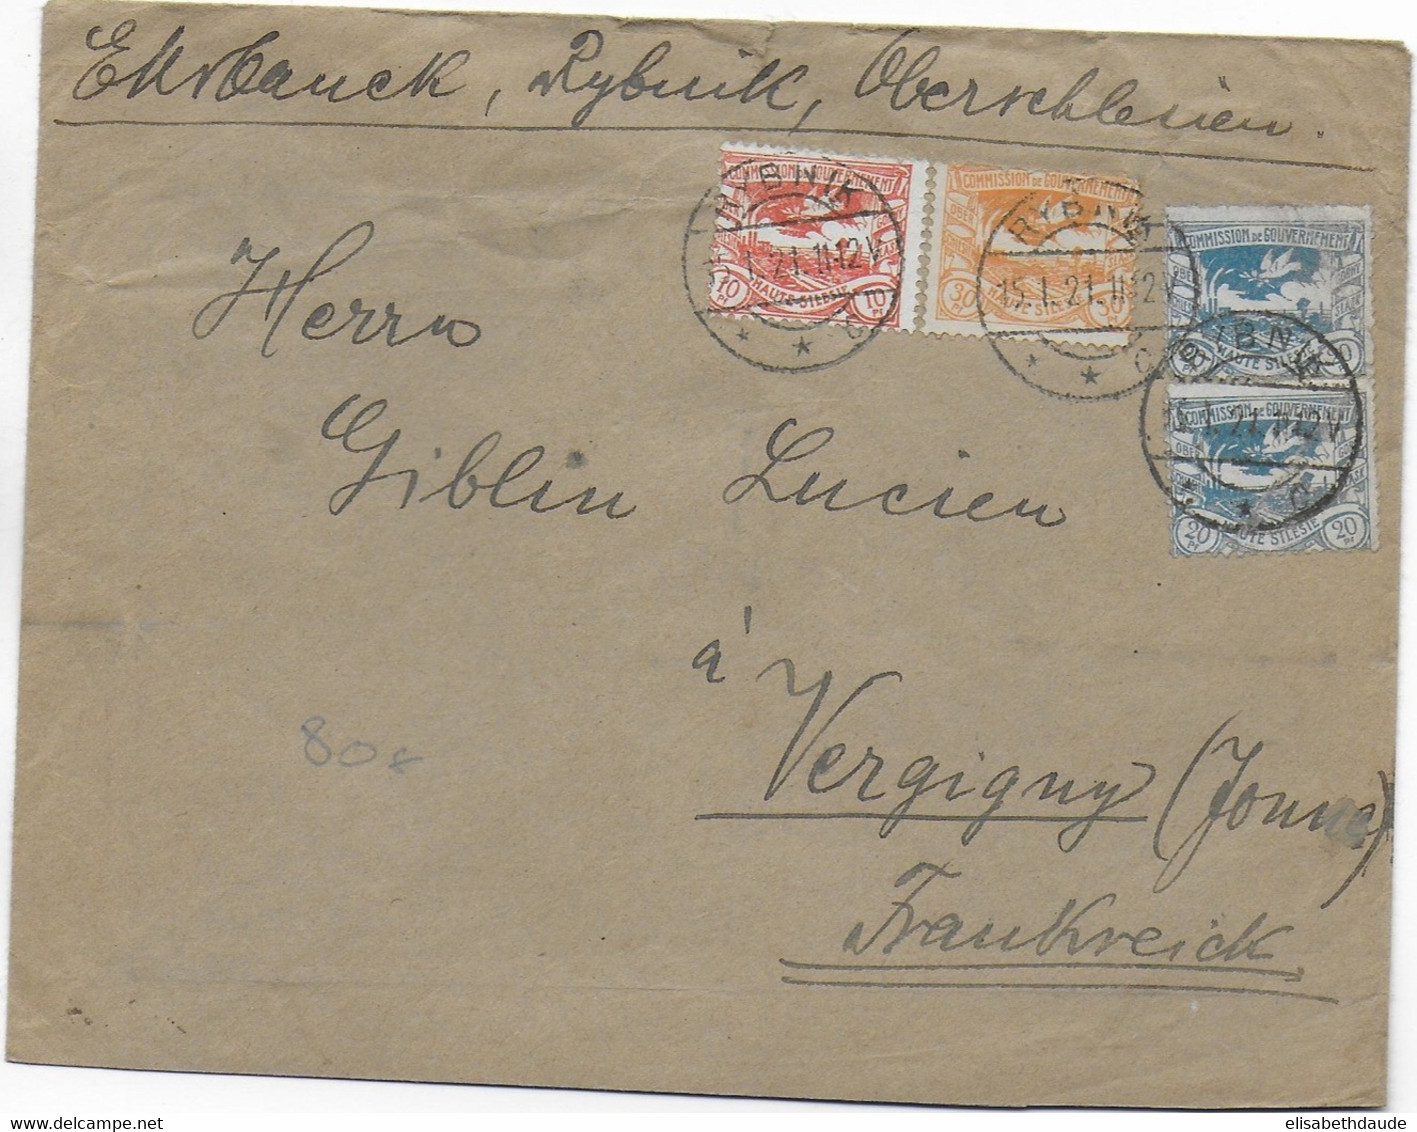 Rybnik, Oberschlesien.
COMMISSION DE GOUVERNEMENT
HAUTE SILESIE
10 Pf 10 Pf
RYBNIK
1.21.11-12V
COMMISSION DE GOUVERNEMENT
30 Pf 30 Pf
RYBNIK
15.1.21.11-12V
C
COMMISSION DE GOUVERNEMENT
HAUTE SILESIE
RYBNIK
COMMISSION DE GOUVERNEMENT
HAUTE SILESIE
20 Pf 20 Pf
Herrn
Giblin Lucien
à
Vergigny (Yonne)
Frankreich
80€
elisabethdaude